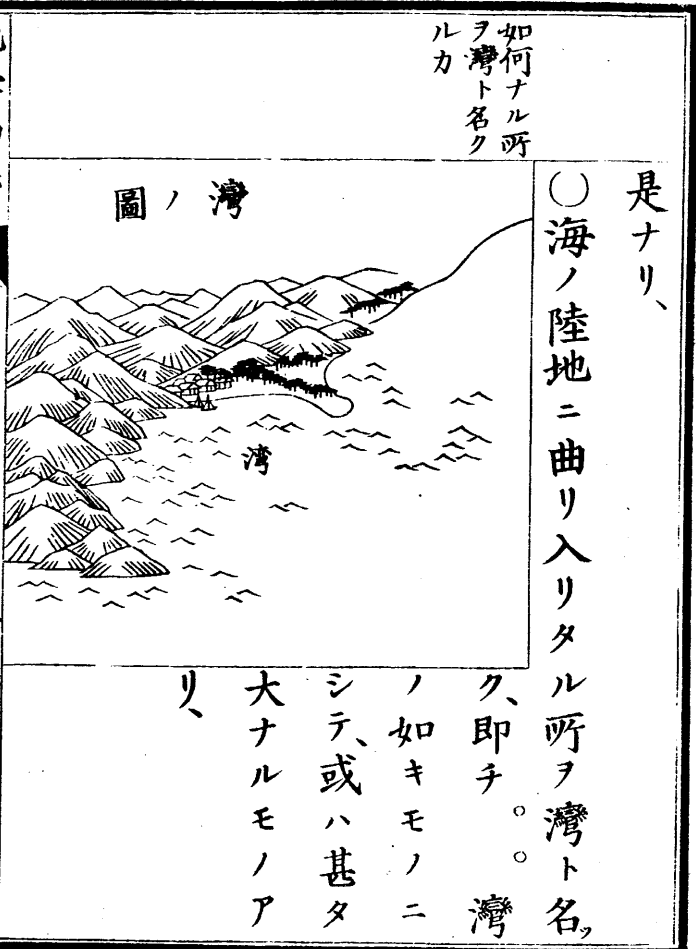 如何ナル所
ヲ灣ト名ク
ルカ
是ナリ、
〇海ノ陸地ニ曲リ入リタル所ヲ灣ト名ッ
ク、即チ。。灣
ノ如キモノニ
シテ、或ハ甚タ
大ナルモノア
リ、
灣ノ圖
湾